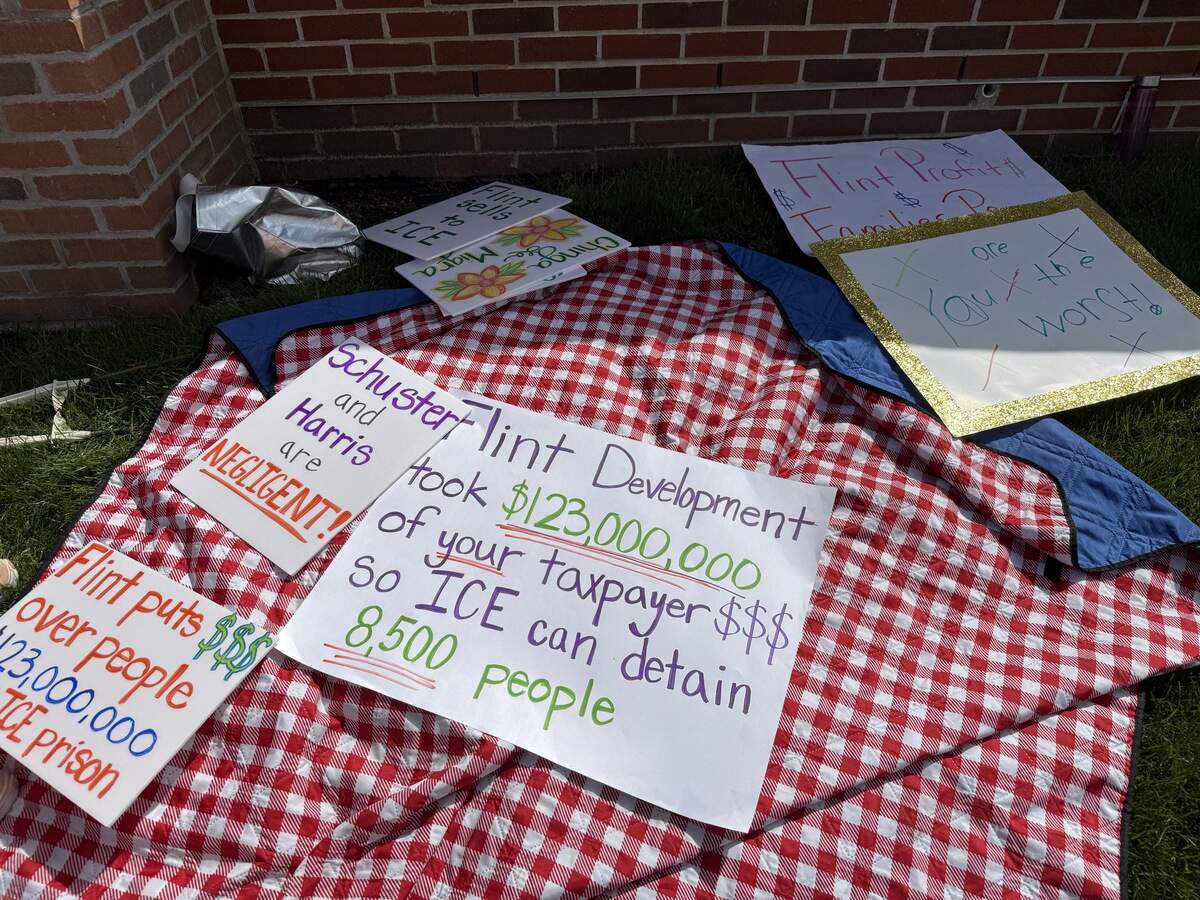 Flint
sells
to
ICE
Chinga
La Migra
Flint Profit$
$ $
Families
are
You the
worst!
Schuster
and
Harris
are
NEGLIGENT!
Flint Development
took $123,000,000
of your taxpayer $$$
so ICE can detain
8,500 people
Flint puts $$$
over people
123,000,000
ICE prison